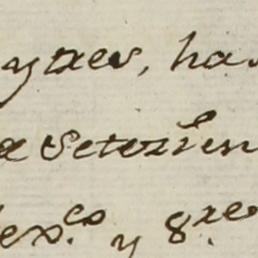 y tres, ha
a Setezien
Mex.co y 8.re